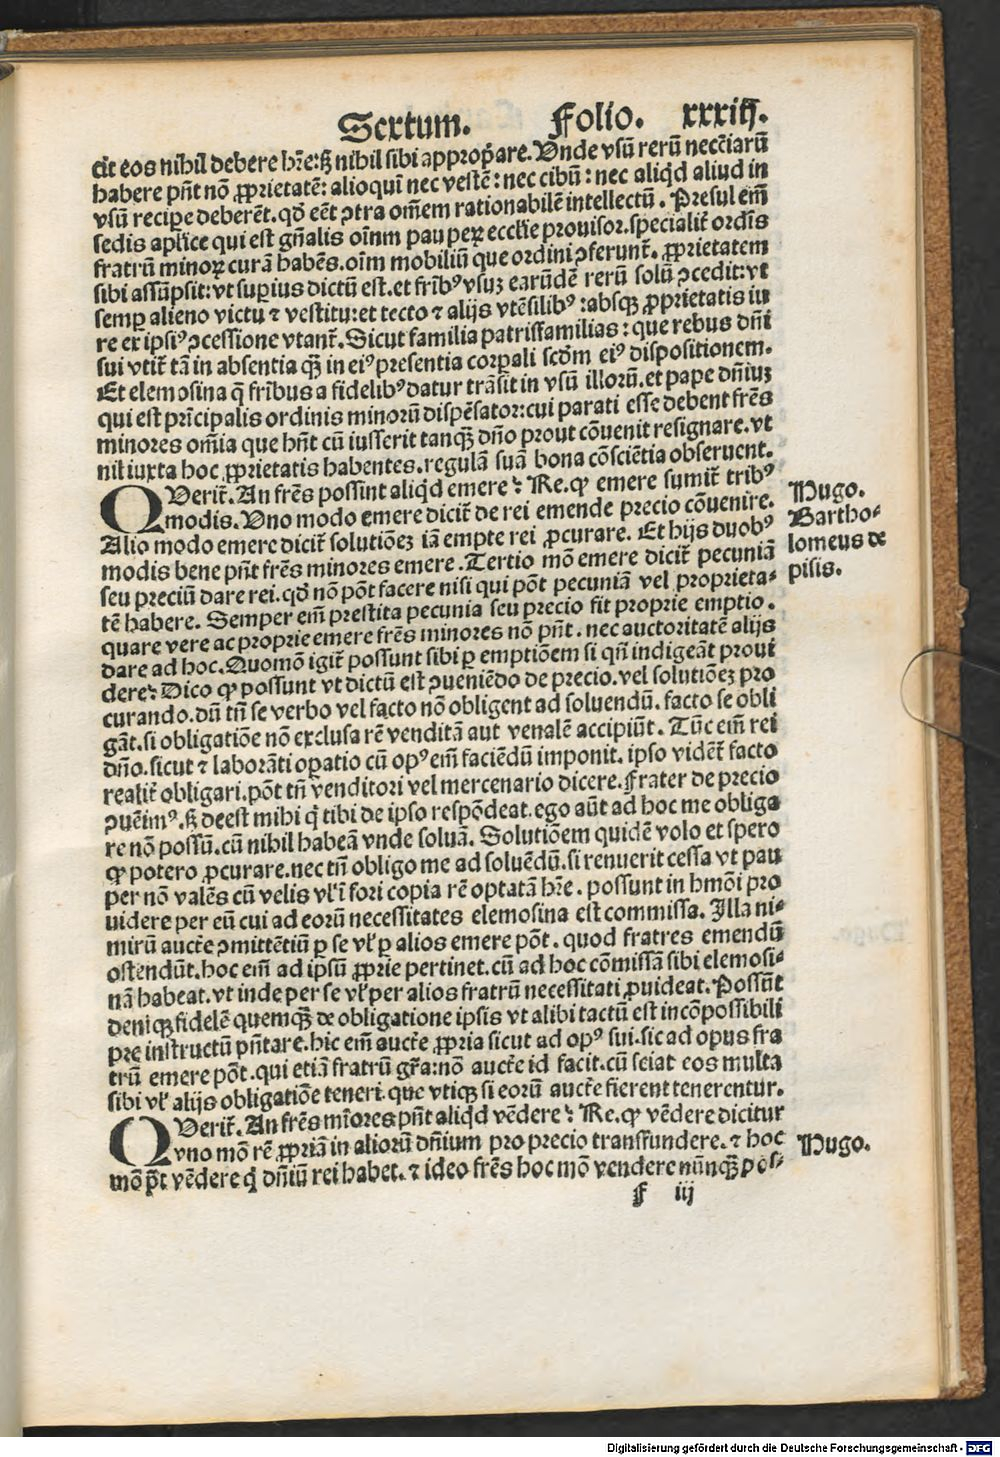 Sextum. Folio. xxxiij.
cit eos nihil debere hr̄e: sꝫ nihil sibi approp̄are. Vnde vsū rerū neccīarū
habere pn̄t nō ꝓprietatē: alioquī nec vestē: nec cibū: nec aliqd aliud in
vsū recipe deberēt. qd̄ eēt ↄtra om̄em rationabilē intellectū. Presul em̄
sedis aplīce qui est gn̄alis oīnm pauperꝝ ecclīe prouisor. specialit̄ ordīs
fratrū minoꝝ curā habēs. oīm mobiliū que ordini ↄferunt̄. ꝓprietatem
sibi assūpsit: vt supius dictū est. et frībꝰ vsuꝫ earūdē rerū solū ↄcedit: vt
semp alieno victu ⁊ vestitu: et tecto ⁊ alijs vtēsilibꝰ: absqꝫ ꝓprietatis iu
re ex ipsiꝰ ↄcessione vtant̄. Sicut familia patrisfamilias: que rebus dn̄i
sui vtit̄ tā in absentia qꝫ̄ in eiꝰ presentia corpali scd̄m eiꝰ dispositionem.
Et elemosina q̄ frībus a fidelibꝰ datur trāsit in vsū illorū. et pape dn̄iuꝫ
qui est prīcipalis ordinis minorū dispēsator: cui parati esse debent frēs
minores om̄ia que hn̄t cū iusserit tanqꝫ̄ dn̄o prout cōuenit resignare. vt
nil iuxta hoc ꝓprietatis habentes. regulā suā bona cōsciētia obseruent.
QVerit̄. An frēs possint aliqd emere? Re. ꝙ emere sumit̄ tribꝰ
modis. Vno modo emere dicit̄ de rei emende precio cōuenire.
Alio modo emere dicit̄ solutiōeꝫ iā empte rei ꝓcurare. Et hijs duobꝰ
modis bene pn̄t frēs minores emere. Tertio mō emere dicit̄ pecuniā
seu preciū dare rei. qd̄ nō pōt facere nisi qui pōt pecuniā vel proprieta⸗
tē habere. Semper em̄ prestita pecunia seu precio fit proprie emptio.
quare vere ac proprie emere frēs minores nō pn̄t. nec auctoritatē alijs
dare ad hoc. Quomō igit̄ possunt sibi p emptiōem si qn̄ indigeāt proui
dere? Dico ꝙ possunt vt dictū est ↄueniēdo de precio. vel solutiōeꝫ pro
curando. dū tn̄ se verbo vel facto nō obligent ad soluendū. facto se obli
gāt. si obligatiōe nō exclusa rē venditā aut venalē accipiūt. Tūc em̄ rei
dn̄o. sicut ⁊ laborāti opatio cū opꝰ em̄ faciēdū imponit. ipso videt̄ facto
realit̄ obligari. pōt tn̄ venditori vel mercenario dicere. Frater de precio
ↄuēimꝰ. sꝫ deest mihi q̄ tibi de ipso respōdeat. ego aūt ad hoc me obliga
re nō possū. cū nihil habeā vnde soluā. Solutiōem quidē volo et spero
ꝙ potero ꝓcurare. nec tn̄ obligo me ad soluēdū. si renuerit cessa vt pau
per nō valēs cū velis vl̄ ī fori copia rē optatā hr̄e. possunt in hmōi pro
uidere per eū cui ad eorū necessitates elemosina est commissa. Illa ni⸗
mirū auctē ↄmittētiū p se vl̄ p alios emere pōt. quod fratres emendū
ostendūt. hoc em̄ ad ipsū ꝓprie pertinet. cū ad hoc cōmissā sibi elemosi⸗
nā habeat. vt inde per se vl̄ per alios fratrū necessitati ꝓuideat. Possūt
deniqꝫ fidelē quemqꝫ̄ de obligatione ipsis vt alibi tactū est incōpossibili
pre instructū pn̄tare. hic em̄ auctē ꝓpria sicut ad opꝰ sui. sic ad opus fra
trū emere pōt. qui etiā fratrū gr̄a: nō auctē id facit. cū sciat eos multa
sibi vl̄ alijs obligatiōe teneri. que vtiqꝫ si eorū auctē fierent tenerentur.
QVerit̄. An frēs mīores pn̄t aliqd vēdere? Re. ꝙ vēdere dicitur
vno mō rē ꝓpriā in aliorū dn̄ium pro precio transfundere. ⁊ hoc
mō pt̄ vēdere q̄ dn̄iū rei habet. ⁊ ideo frēs hoc mō vendere nūnqꝫ̄ pos⸗
f iij
Hugo.
Bartho⸗
lomeus de
pisis.
Hugo.
Digitalisierung gefördert durch die Deutsche Forschungsgemeinschaft - DFG